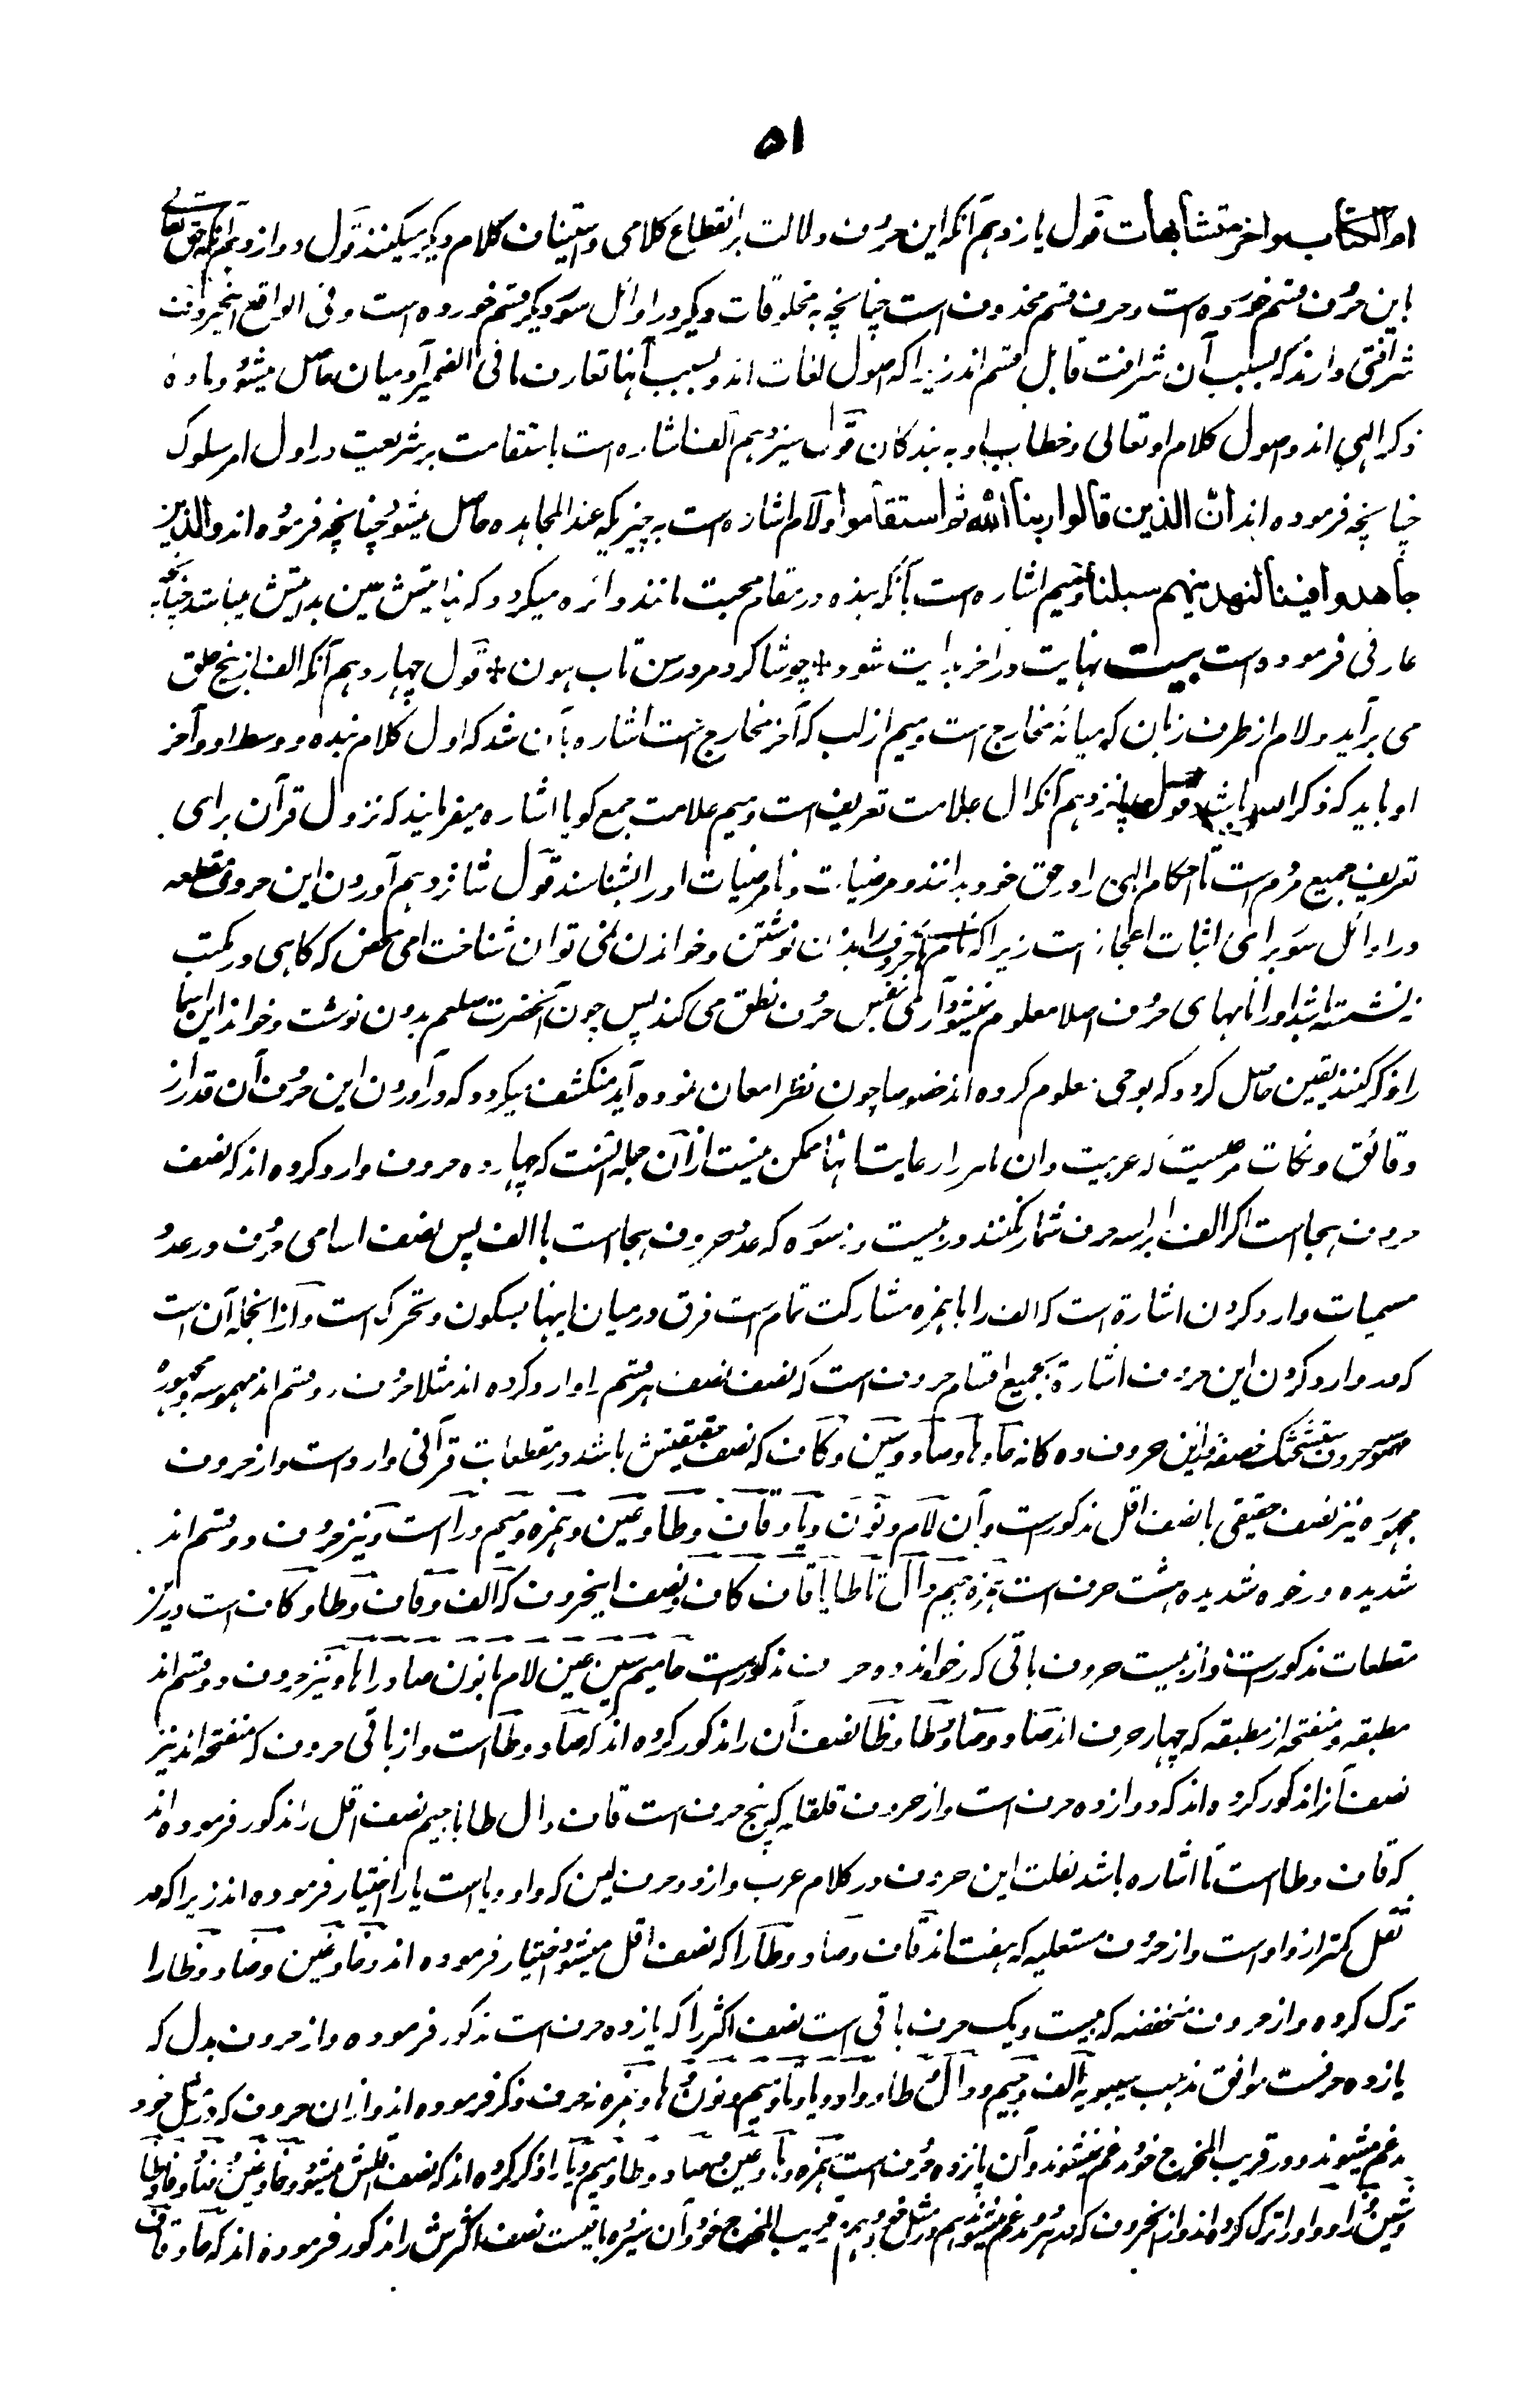 ۵۱
ام الکتاب و اخر متشابهات قول یازدهم آنکه این حروف دلالت بر انقطاع کلامی و استیناف کلام دیگر میکنند قول دوازدهم آنکه حق تعالی
باین حروف قسم خورده است و حرف قسم محذوف است چنانچه به مخلوقات دیگر در اوائل سور دیگر قسم خورده است و فی الواقع اینحروف
شرافتی دارند که بسبب آن شرافت قابل قسم اند زیرا که اصول لغات اند و بسبب آنها تعارف ما فی الضمیر آدمیان حاصل میشود و ماده
ذکر الهی اند و اصول کلام او تعالی و خطاب او به بندگان قول سیزدهم الف اشاره است باستقامت بر شریعت در اول امر سلوک
چنانچه فرموده اند ان الذین قالوا ربنا الله ثم استقاموا و لام اشاره است به چیزیکه عند المجاهده حاصل میشود چنانچه فرموده اند والذین
جاهدوا فینا لنهدینهم سبلنا و میم اشاره است بآنکه بنده در مقام محبت مانند دائره میگردد که نهایتش عین بدایتش میباشد چنانچه
عارفی فرموده است بیت نهایت در آخر بدایت شود + چو شاگرد مرورسن تاب بون + قول چهاردهم آنکه الف از بیخ حلق
می برآید و لام از طرف زبان که میانه مخارج است و میم از لب که آخر مخارج است اشاره بآن شد که اول کلام بنده و وسط او و آخر
او باید که ذکر الله باشد قول پانزدهم آنکه ال علامت تعریف است و میم علامت جمع گویا اشاره میفرمایند که نزول قرآن برای
تعریف جمیع مردم است تا احکام الهی را در حق خود بدانند و مرضیات و نامرضیات او را بشناسند قول شانزدهم آوردن این حروف مقطعه
در اوائل سور برای اثبات اعجاز است زیرا که نام حروف را بدون نوشتن و خواندن نمی توان شناخت امی محض که گاهی در مکتب
ننشسته باشد او را نامهای حروف اصلا معلوم نمیشود آری نفس حروف نطق می کند پس چون آنحضرت صلعم بدون نوشت و خواند این اسما
را ذکر کنند یقین حاصل گردد که بوحی معلوم کرده اند خصوصا چون نظر امعان نموده آید منکشف میگردد که در آوردن این حروف آن قدر از
دقائق و نکات مرعیست که عربیت دان ماهر را رعایت آنها ممکن نیست از آن جمله آنست که چهارده حروف وارد کرده اند که نصف
حروف هجا است اگر الف را برأسه حرف شمار نکنند در بیست و نه سوره که عدد حروف هجا است با الف پس نصف اسامی حروف در عدد
مسمیات وارد کردن اشارة است که الف را با همزه مشارکت تمام است فرق درمیان اینها بسکون و تحرک است و از انجمله آن است
که در وارد کردن این حروف اشارة بجمیع اقسام حروف است که نصف نصف هر قسم را وارد کرده اند مثلا حروف دو قسم اند مهموسه و مجهوره
مهموسه حروف ستشحثک خصفه و ازین حروف ده گانه حا و ها و صاد و سین و کاف که نصف حقیقیش باشد در مقطعات قرآنی وارد است و از حروف
مجهوره نیز نصف حقیقی یا نصف اقل مذکور است و آن لام و نون و یا و قاف و طا و عین و همزه و میم و را است و نیز حروف دو قسم اند
شدیده و رخوه شدیده هشت حرف است همزه جیم دال تا طا با قاف کاف و نصف اینحروف که الف و قاف و طا و کاف است در نیز
مقطعات مذکور است و از بیست حروف باقی که رخواند ده حرف مذکور است حا میم سین عین لام یا نون صاد را ها و نیز حروف دو قسم اند
مطبقه و منفتحه از مطبقه که چهار حرف اند صاد و ضاد و طا و ظا نصف آن را مذکور کرده اند که صاد و طا است و از باقی حروف که منفتحه اند نیز
نصف آنرا مذکور کرده اند که دوازده حرف است و از حروف قلقله که پنج حرف است قاف دال طا با جیم نصف اقل را مذکور فرموده اند
که قاف و طا است تا اشاره باشد بقلت این حروف در کلام عرب و از دو حرف لین که واو و یا است یا را اختیار فرموده اند زیرا که در
ثقل کمتر از واو است و از حروف مستعلیه که هفت اند قاف و صاد و طا را که نصف اقل میشود اختیار فرموده اند و خا و غین و ضاد و ظا را
ترک کرده و از حروف منخفضه که بیست و یک حرف باقی است نصف اکثر را که یازده حرف است مذکور فرموده و از حروف بدل که
یازده حرفست موافق مذهب سیبویه الف و جیم و دال و طا و واو و یا و تا و میم و نون و ها و همزه نه حرف ذکر فرموده اند و از آن حروف که در مثل خود
مدغم میشوند و در قریب المخرج خود مدغم نمیشوند و آن پانزده حرف است همزه و ها و عین و صاد و طا و میم و یا را ذکر کرده اند که نصف اقلش میشود و خا و غین و ضاد و فا و ظا
و شین و زا و واو را ترک کرده اند و از انحروف که در هر دو مدغم میشوند هم در مثل خود و هم در قریب المخرج خود و آن سیزده باقیست نصف اکثرش را مذکور فرموده اند که حا و قاف